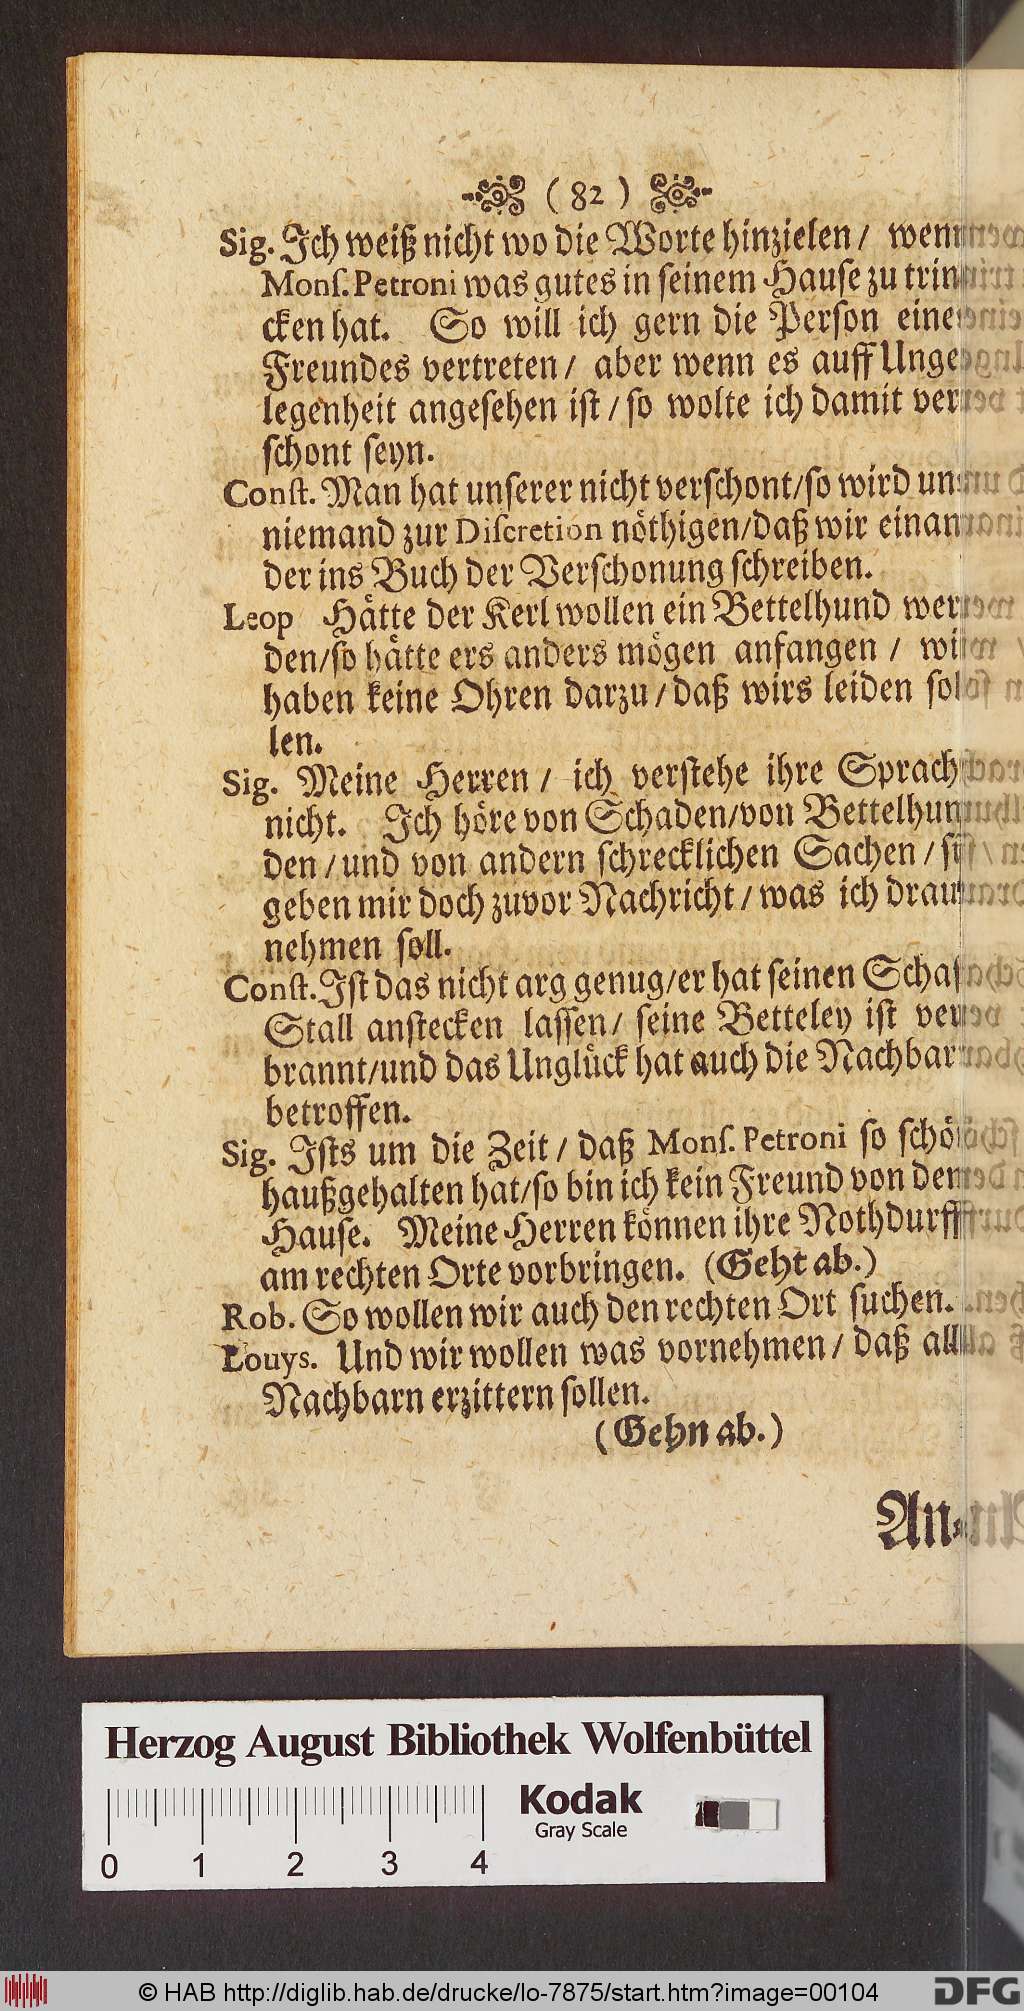 ( 82 )
Sig. Ich weiß nicht wo die Worte hinzielen / wenn
Monſ. Petroni was gutes in ſeinem Hauſe zu trin
cken hat. So will ich gern die Perſon eine
Freundes vertreten / aber wenn es auff Unge
legenheit angeſehen iſt / ſo wolte ich damit ver
ſchont ſeyn.
Conſt. Man hat unſerer nicht verſchont/ſo wird un
niemand zur Diſcretion nöthigen/daß wir einan
der ins Buch der Verſchonung ſchreiben.
Leop Hätte der Kerl wollen ein Bettelhund wer
den/ſo hätte ers anders mögen anfangen / wir
haben keine Ohren darzu / daß wirs leiden ſol
len.
Sig. Meine Herren / ich verſtehe ihre Sprach
nicht. Ich höre von Schaden/von Bettelhun
den / und von andern ſchrecklichen Sachen / ſi
geben mir doch zuvor Nachricht / was ich drau
nehmen ſoll.
Conſt. Iſt das nicht arg genug/er hat ſeinen Schaf
Stall anſtecken laſſen/ ſeine Betteley iſt ver
brannt/und das Unglück hat auch die Nachbar
betroffen.
Sig. Iſts um die Zeit / daß Monſ. Petroni ſo ſchö
haußgehalten hat/ſo bin ich kein Freund von dem
Hauſe. Meine Herren können ihre Nothdurff
am rechten Orte vorbringen. (Geht ab.)
Rob. So wollen wir auch den rechten Ort ſuchen.
Louys. Und wir wollen was vornehmen / daß all
Nachbarn erzittern ſollen.
(Gehn ab.)
An⸗
Herzog August Bibliothek Wolfenbüttel
Kodak
Gray Scale
0 1 2 3 4
© HAB http://diglib.hab.de/drucke/lo-7875/start.htm?image=00104
DFG